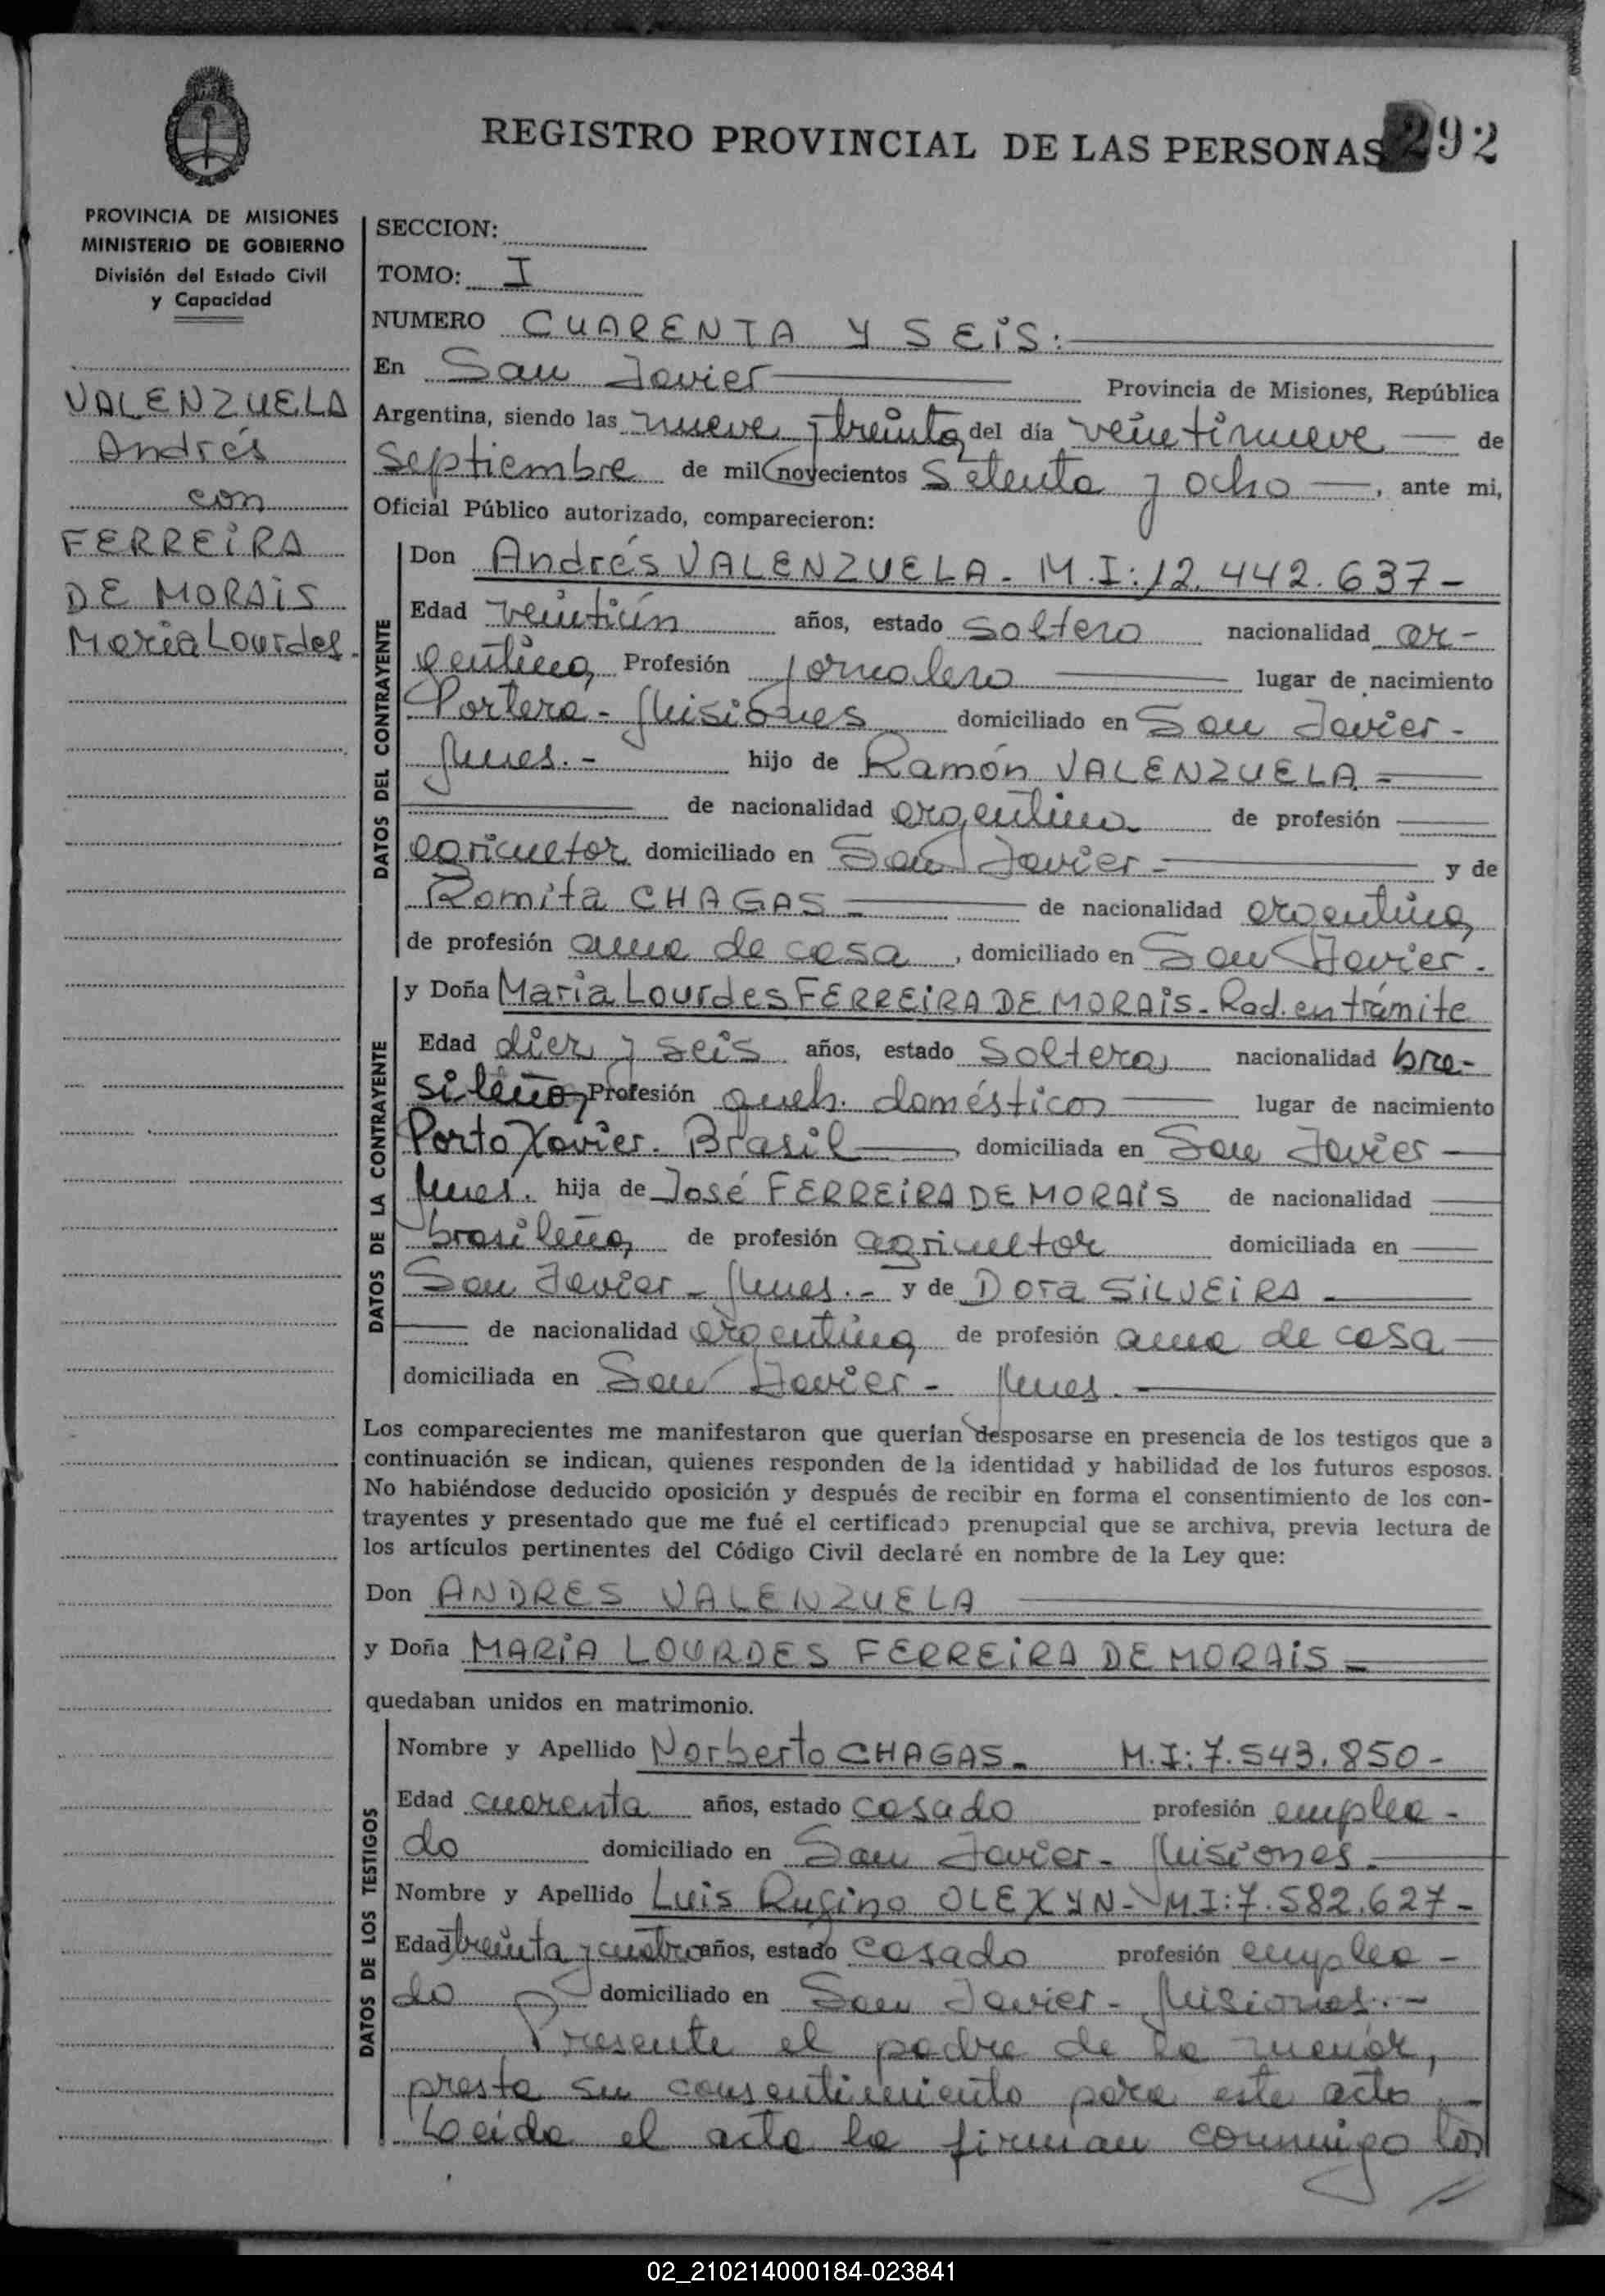 REGISTRO PROVINCIAL DE LAS PERSONAS 292
PROVINCIA DE MISIONES
MINISTERIO DE GOBIERNO
División del Estado Civil
y Capacidad
VALENZUELA
Andrés
con
FERREIRA
DE MORAIS
María Lourdes.
SECCION:
TOMO: I
NUMERO CUARENTA Y SEIS:
En San Javier Provincia de Misiones, República
Argentina, siendo las nueve y treinta del día veintinueve de
Septiembre de mil novecientos Setenta y ocho, ante mi,
Oficial Público autorizado, comparecieron:
DATOS DEL CONTRAYENTE
Don Andrés VALENZUELA - M.I: 12.442.637-
Edad veintiún años, estado soltero nacionalidad ar-
gentina, Profesión jornalero lugar de nacimiento
Portera - Misiones domiciliado en San Javier -
Mnes. - hijo de Ramón VALENZUELA =
de nacionalidad argentina de profesión
agricultor domiciliado en San Javier - y de
Romita CHAGAS - de nacionalidad argentina,
de profesión ama de casa, domiciliado en San Javier.
DATOS DE LA CONTRAYENTE
y Doña María Lourdes FERREIRA DE MORAIS - Rad. en trámite
Edad diez y seis años, estado Soltera, nacionalidad bra-
sileña, Profesión queh. domésticos lugar de nacimiento
Porto Xavier. Brasil domiciliada en San Javier
Mnes. hija de José FERREIRA DE MORAIS de nacionalidad
brasileña, de profesión agricultor domiciliada en
San Javier - Mnes. - y de Dora SILVEIRA -
de nacionalidad argentina, de profesión ama de casa
domiciliada en San Javier - Mnes. -
Los comparecientes me manifestaron que querían desposarse en presencia de los testigos que a
continuación se indican, quienes responden de la identidad y habilidad de los futuros esposos.
No habiéndose deducido oposición y después de recibir en forma el consentimiento de los con-
trayentes y presentado que me fué el certificado prenupcial que se archiva, previa lectura de
los artículos pertinentes del Código Civil declaré en nombre de la Ley que:
Don ANDRES VALENZUELA
y Doña MARIA LOURDES FERREIRA DE MORAIS -
quedaban unidos en matrimonio.
DATOS DE LOS TESTIGOS
Nombre y Apellido Norberto CHAGAS - M.I: 7.543.850-
Edad cuarenta años, estado casado profesión emplea-
do domiciliado en San Javier - Misiones.
Nombre y Apellido Luis Rufino OLEXYN - M.I: 7.582.627-
Edad treinta y cuatro años, estado casado profesión emplea-
do domiciliado en San Javier - Misiones. -
Presente el padre de la menor,
presta su consentimiento para este acto. -
Leida el acta la firman conmigo los
02_210214000184-023841